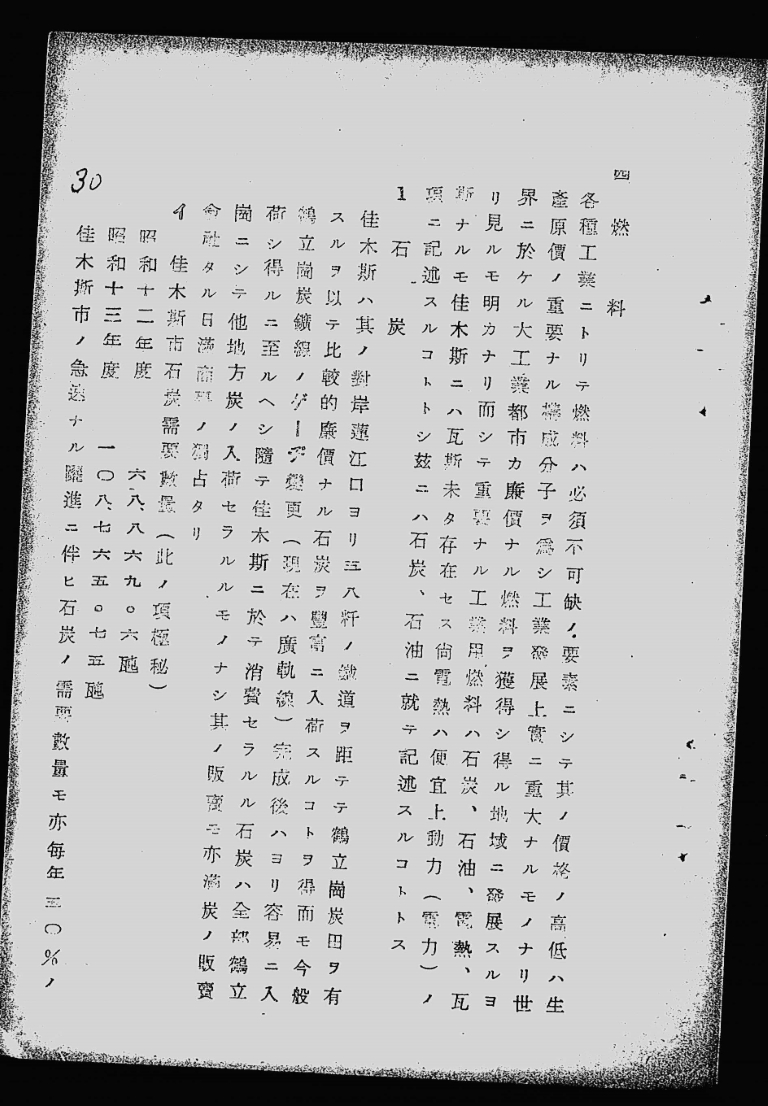 四 燃料
各種工業ニトリテ燃料ハ必須不可缺ノ要素ニシテ其ノ價格ノ高低ハ生
產原價ノ重要ナル構成分子ヲ爲シ工業發展上實ニ重大ナルモノナリ世
界ニ於ケル大工業都市カ廉價ナル燃料ヲ獲得シ得ル地域ニ發展スルヨ
リ見ルモ明カナリ而シテ重要ナル工業用燃料ハ石炭、石油、電熱、瓦
斯ナルモ佳木斯ニハ瓦斯未タ存在セス尙電熱ハ便宜上動力(電力)ノ
項ニ記述スルコトトシ玆ニハ石炭、石油ニ就テ記述スルコトトス
1 石炭
佳木斯ハ其ノ對岸蓮江口ヨリ五八粁ノ鐵道ヲ距テテ鶴立崗炭田ヲ有
スルヲ以テ比較的廉價ナル石炭ヲ豐富ニ入荷スルコトヲ得而モ今般
鶴立崗炭鑛線ノゲーヂ變更(現在ハ廣軌線)完成後ハヨリ容易ニ入
荷シ得ルニ至ルヘシ隨テ佳木斯ニ於テ消費セラルル石炭ハ全部鶴立
崗ニシテ他地方炭ノ入荷セラルルモノナシ其ノ販賣モ亦滿炭ノ販賣
會社タル日滿商事ノ獨占タリ
イ 佳木斯市石炭需要數量(此ノ項極秘)
昭和十二年度 六八、八六九。六瓲
昭和十三年度 一〇八、七六五。七五瓲
佳木斯市ノ急速ナル躍進ニ伴ヒ石炭ノ需要數量モ亦每年三〇%ノ
30